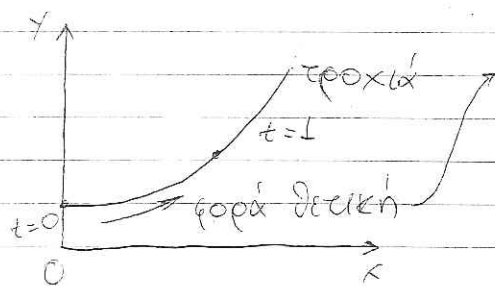 y
τροχιά
t=1
φορά θετική
t=0
0
x